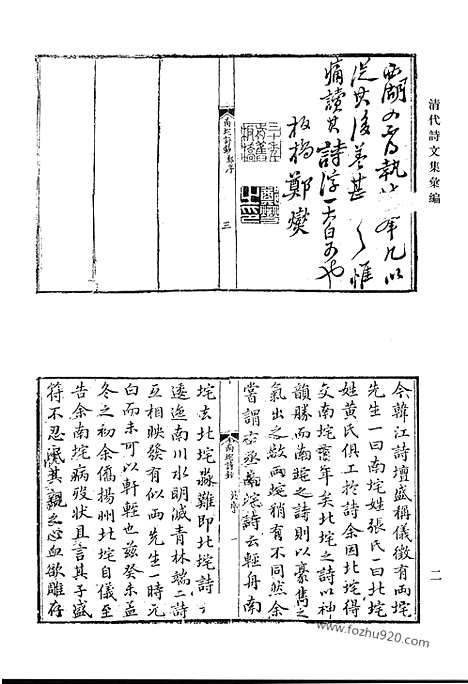 清代詩文集彙編
痛讀其詩浮一大白可也
板橋鄭燮
南垞詩鈔 鄭序 三
今韓江詩壇盛稱儀徵有兩垞
先生一曰南垞姓張氏一曰北垞
姓黄氏俱工於詩余因北垞得
交南垞壹年矣北垞之詩以神
韻勝而南垞之詩則以豪雋之
氣出之故兩垞稍有不同然余
嘗謂
垞詩云輕舟南
南垞詩鈔 序 一
垞去北垞淼難即北垞詩
逶迤南川水明滅青林端二詩
互相映發有似兩先生一時元
白而未可以軒輊也茲癸未孟
冬之初余僑揚州北垞自儀至
告余南垞病歿狀且言其子盛
符不忍泯其親之心血欲雕存
二
www.fozhu920.com